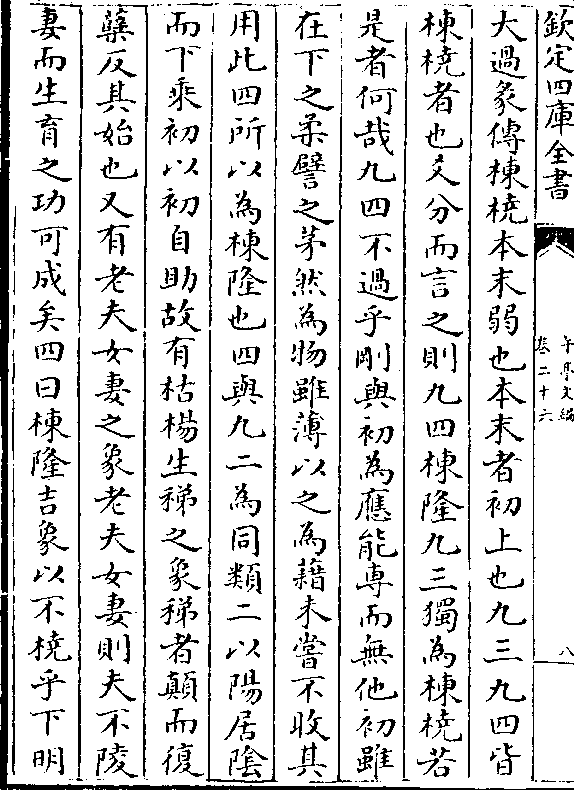 欽定四庫全書
卷二十六
八
大過彖傳棟橈本末弱也本末者初上也九三九四皆
棟橈者也爻分而言之則九四棟隆九三獨為棟橈若
是者何哉九四不過乎剛與初為應能専而無他初雖
在下之柔譬之茅然為物雖薄以之為藉未嘗不收其
用此四所以為棟隆也四與九二為同類二以陽居陰
而下乘初以初自助故有枯楊生稊之象稊者顛而復
蘖反其始也又有老夫女妻之象老夫女妻則夫不陵
妻而生育之功可成矣四曰棟隆吉象以不橈乎下明